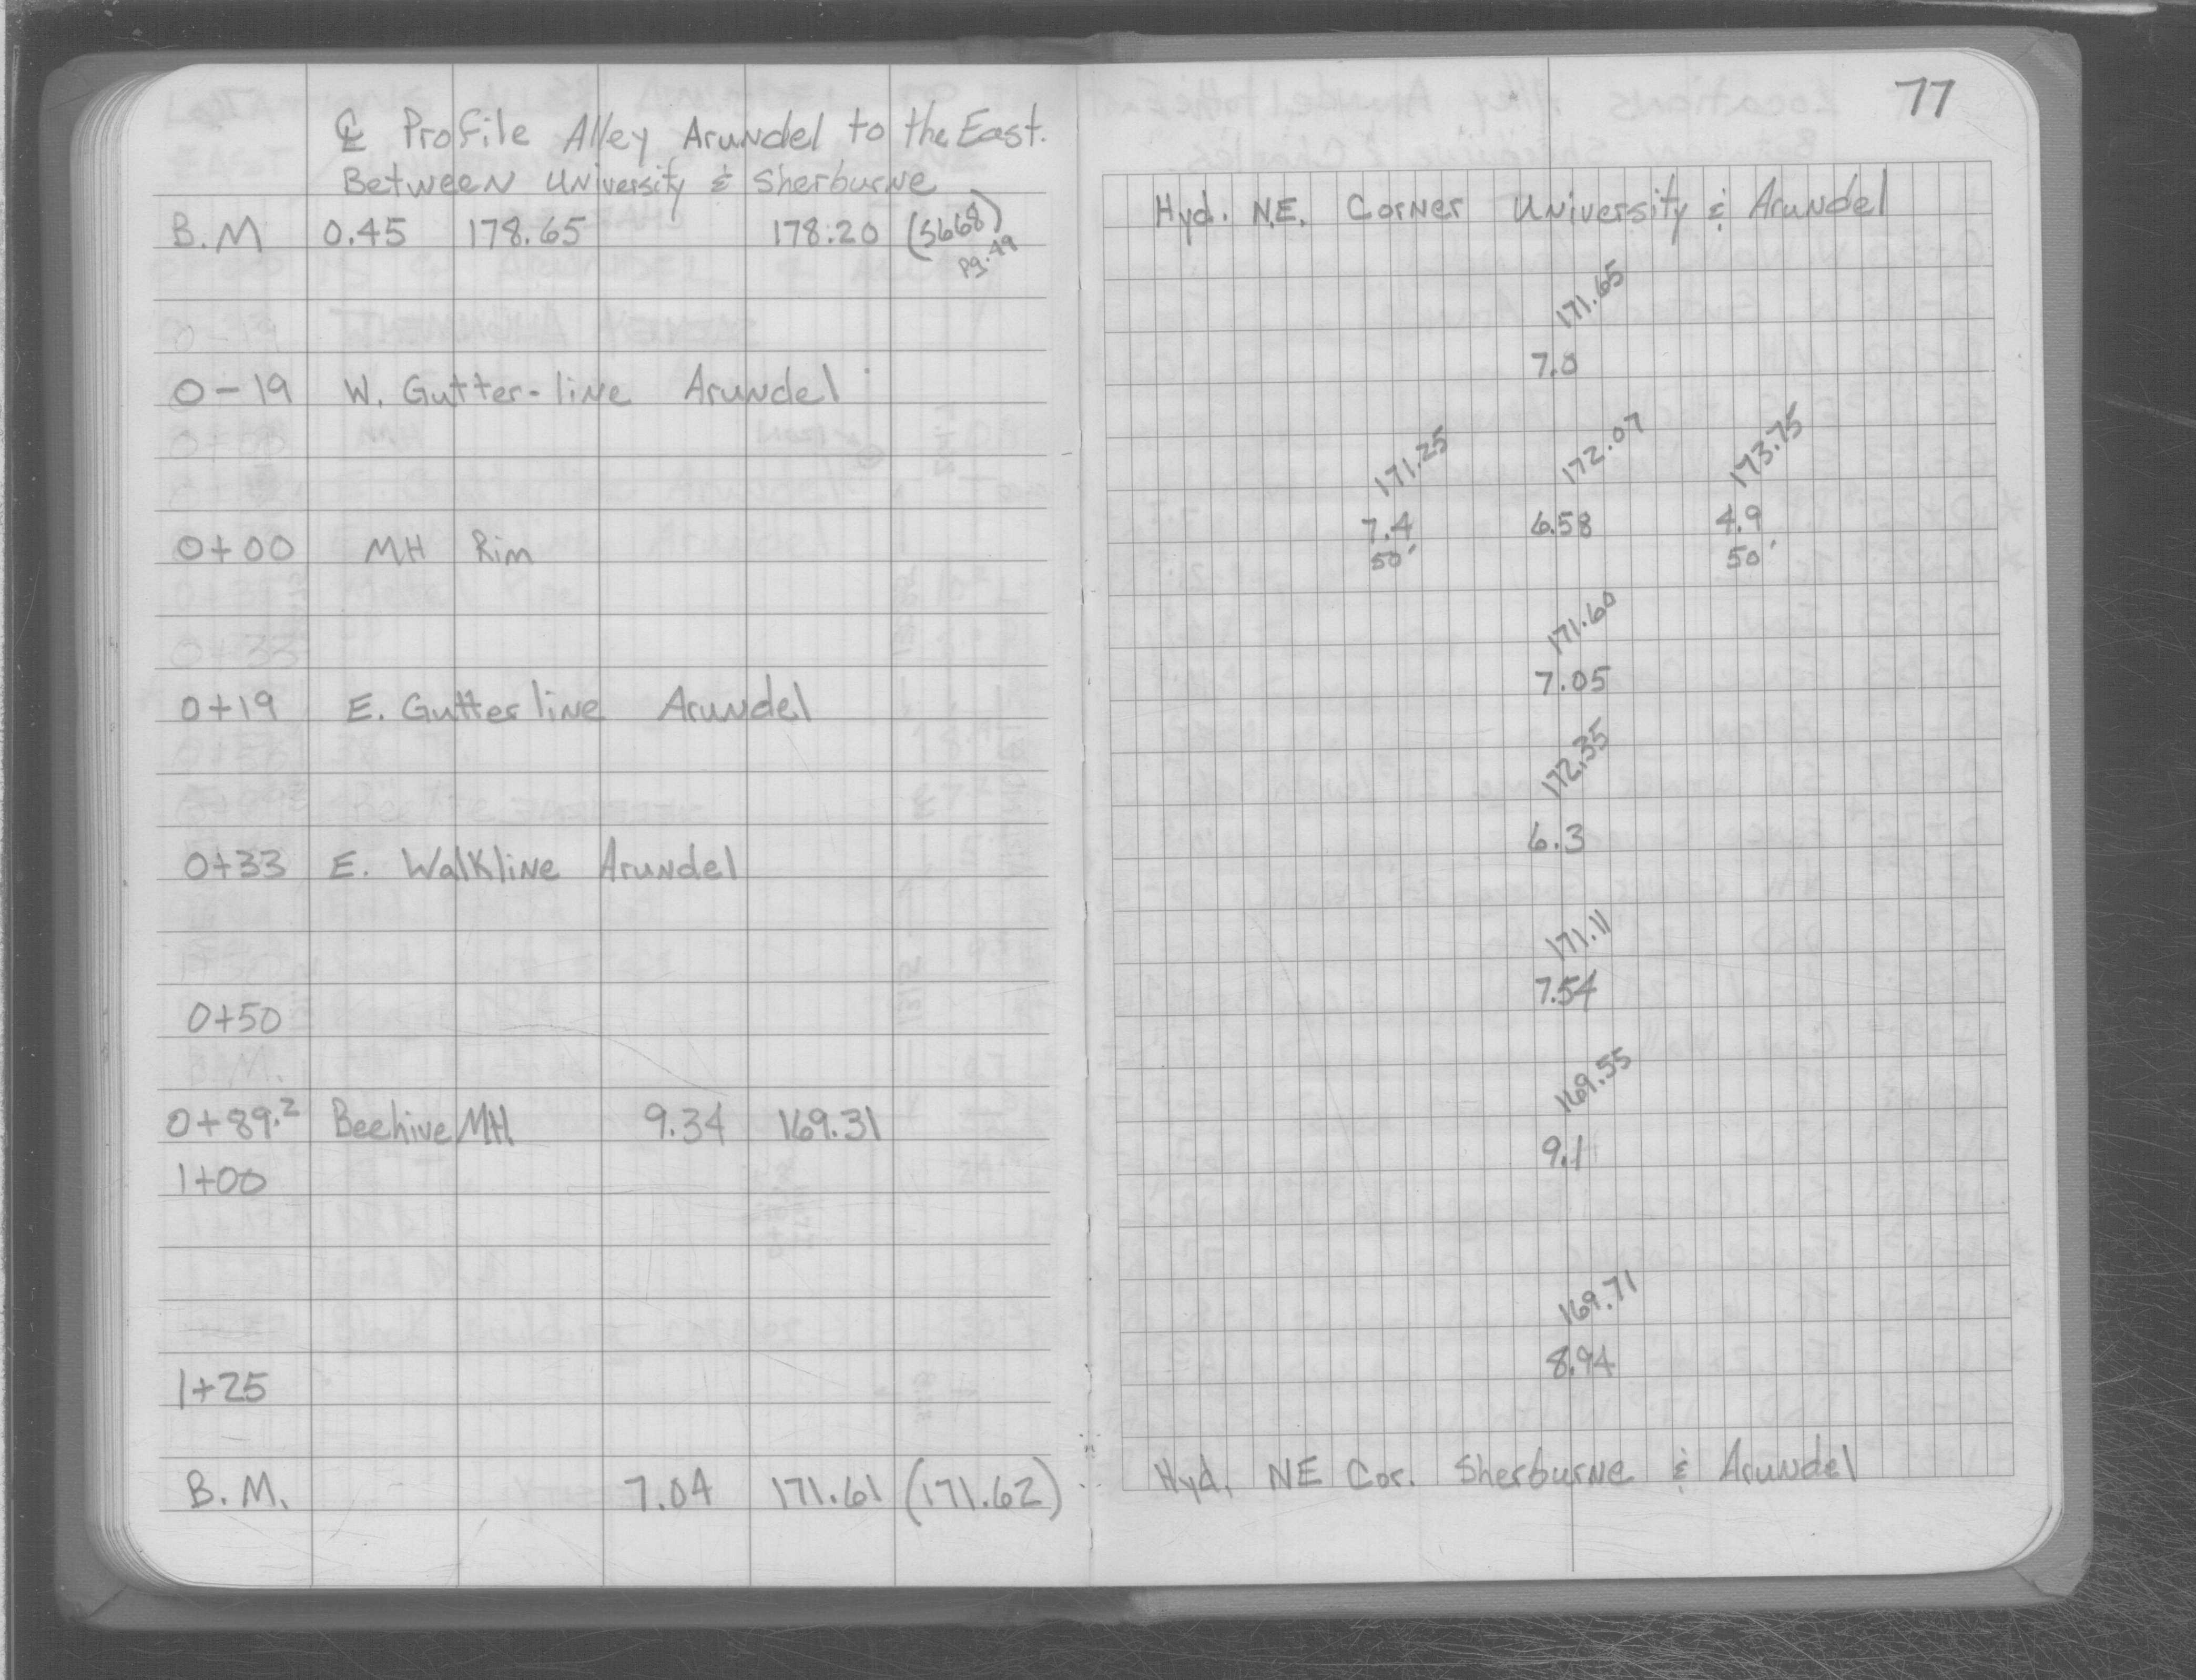 77
℄ Profile Alley Arundel to the East.
Between University & Sherburne
B.M 0.45 178.65 178.20 (5668)
pg. 49
Hyd. N.E. Corner University & Arundel
171.65
7.0
0-19 W. Gutter-line Arundel
171.25 172.07 173.75
7.4 6.58 4.9
50' 50'
0+00 MH Rim
171.60
7.05
0+19 E. Gutter line Arundel
172.35
6.3
0+33 E. Walkline Arundel
171.11
7.54
0+50
169.55
9.1
0+89.² Beehive MH. 9.34 169.31
1+00
169.71
8.94
1+25
B.M. 7.04 171.61 (171.62)
Hyd. NE Cor. Sherburne & Arundel